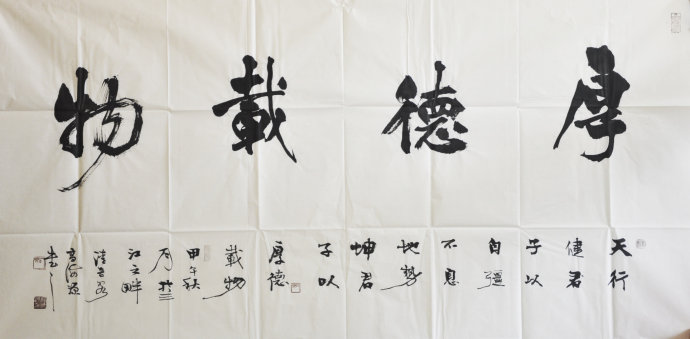 厚德載物
天行
健君
子以
自強
不息
地勢
坤君
子以
厚德
載物
甲午秋
月於三
江之畔
書